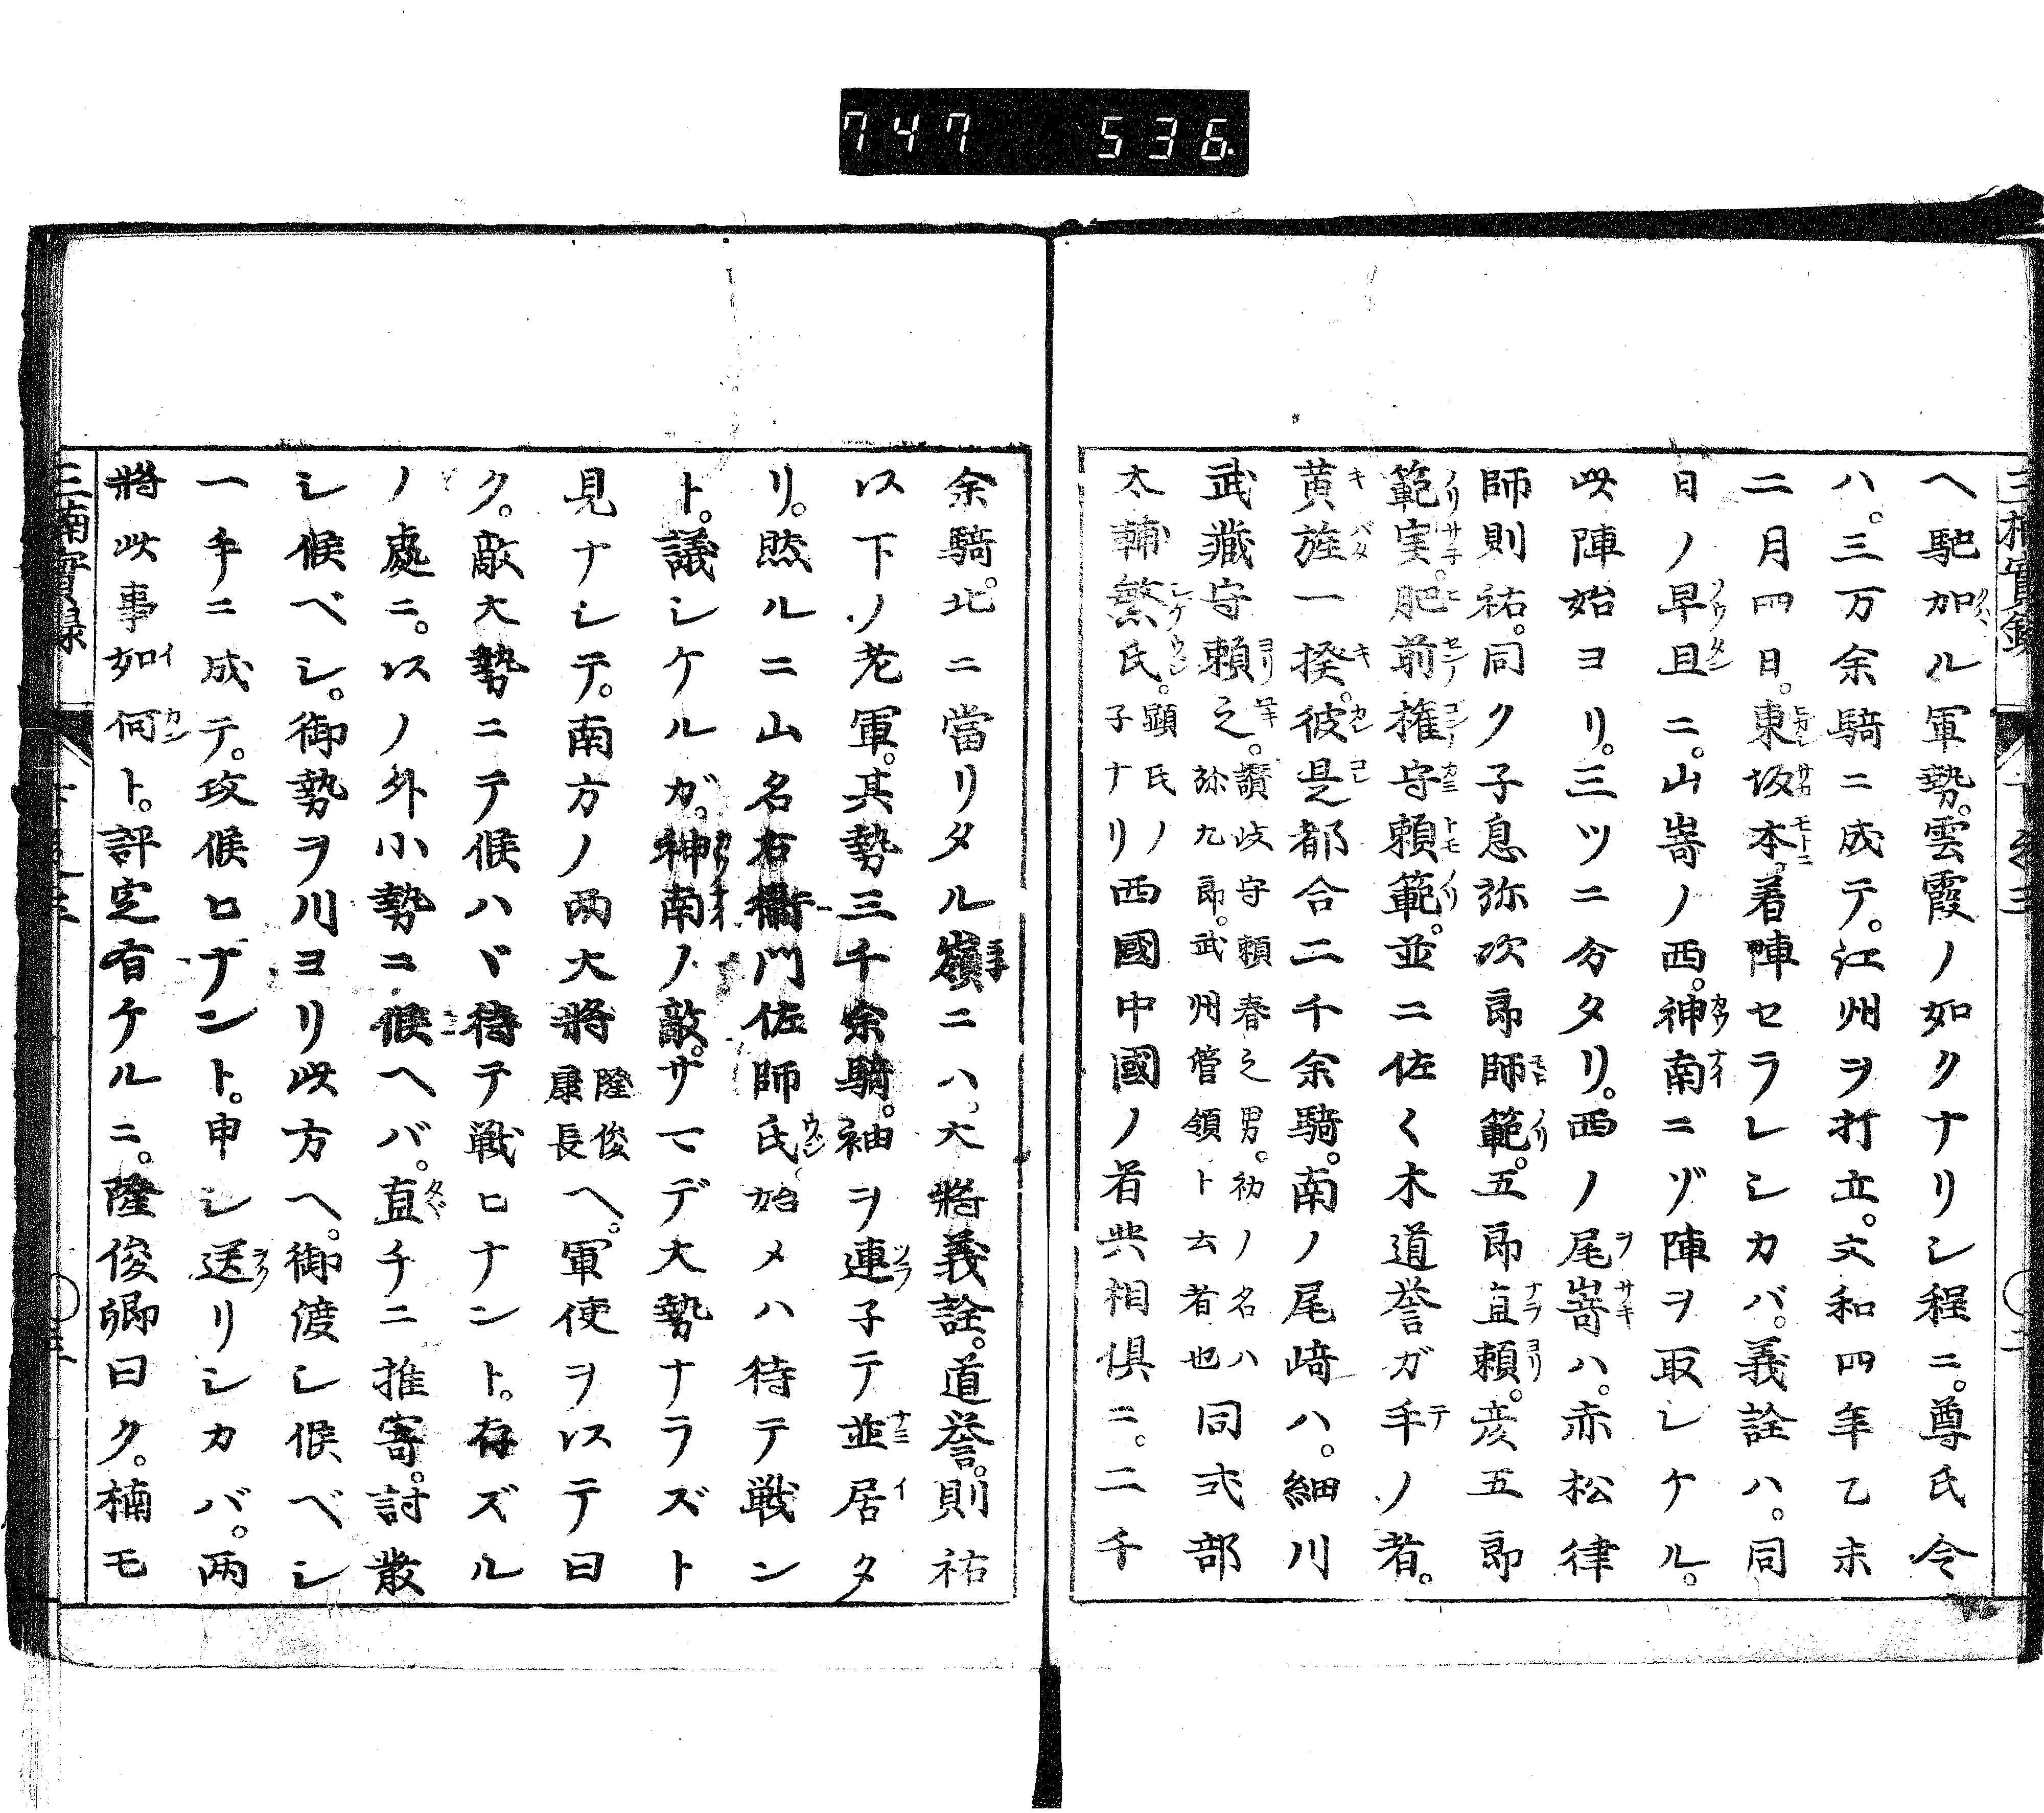 747 536
ヘ馳加ル軍勢。雲霞ノ如クナリシ程ニ。尊氏令
ハ。三万余騎ニ成テ。江州ヲ打立。文和四年乙未
二月四日。東坂本着陣セラレシカバ。義詮ハ。同
日ノ早旦ニ。山嵜ノ西。神南ニゾ陣ヲ取シケル。
此陣始ヨリ。三ツニ分タリ。西ノ尾嵜ハ。赤松律
師則祐。同ク子息弥次郎師範。五郎直頼。彦五郎
範実。肥前権守頼範。並ニ佐〻木道誉ガ手ノ者。
黄旌一揆。彼是都合二千余騎。南ノ尾﨑ハ。細川
武藏守頼之。讃岐守頼春之男。初ノ名ハ弥九郎。武州管領ト云者也同式部
太輔繁氏。顕氏ノ子ナリ西國中國ノ者共相倶ニ。二千
余騎。北ニ當リタル嶺ニハ。大將義詮。道誉。則祐
以下ノ老軍。其勢三千余騎。袖ヲ連子テ並居タ
リ。然ルニ山名右衞門佐師氏。始メハ待テ戦ン
ト。議シケルガ。神南ノ敵。サマデ大勢ナラズト
見ナシテ。南方ノ両大將隆俊康長ヘ。軍使ヲ以テ曰
ク。敵大勢ニテ候ハヾ待テ戦ヒナント。存ズル
ノ處ニ。以ノ外小勢ニ候ヘバ。直チニ推寄。討散
シ候ベシ。御勢ヲ川ヨリ此方ヘ。御渡シ候ベシ
一手ニ成テ。攻候ヒナント。申シ送リシカバ。両
將此事如何ト。評定有ケルニ。隆俊卿曰ク。楠モ